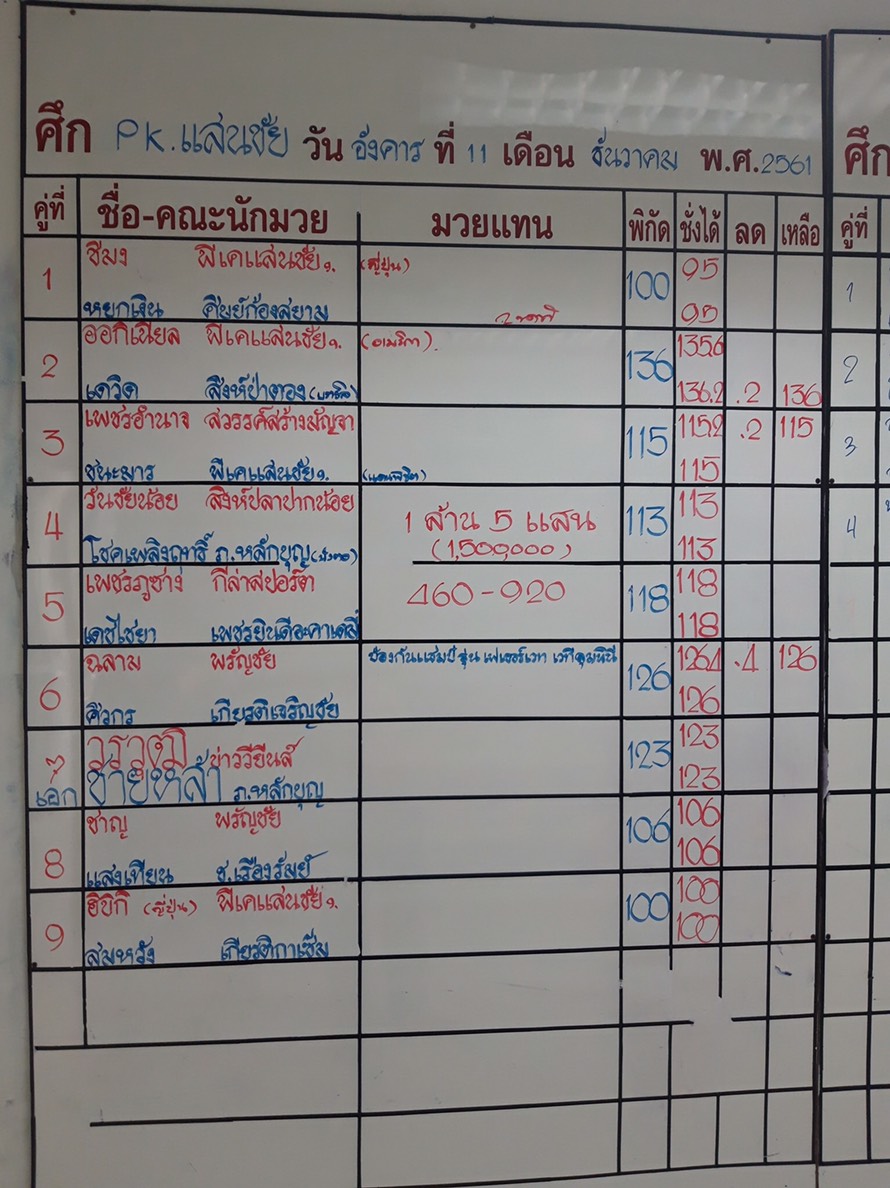 ศึก PK.แสนชัย วัน อังคาร ที่ 11 เดือน ธันวาคม พ.ศ.2561 ศึก
คู่ที่ ชื่อ-คณะนักมวย มวยแทน พิกัด ชั่งได้ ลด เหลือ คู่ที่
1 ชิมง พีเคแสนชัยฯ. (ญี่ปุ่น) 100 95 1
หยกเงิน ศิษย์ก้องสยาม 95
2 ออกิเนียล พีเคแสนชัยฯ. (อเมริกา). 136 135.6 2
เดวิด สิงห์ป่าตอง 136.2 .2 136
3 เพชรอำนาจ สวรรค์สร้างมัญจา 115 115.2 .2 115 3
ชนะมาร พีเคแสนชัยฯ. 115
4 วันชัยน้อย สิงห์ปลาปากน้อย 1 ล้าน 5 แสน 113 113 4
โชคเพลิงฤทธิ์ ภ.หลักบุญ (1,500,000) 113
5 เพชรภูซาง กีล่าสปอร์ต 460-920 118 118
เดชไชยา เพชรยินดีอะคาเดมี่ 118
6 ฉลาม พรัญชัย ป้องกันแชมป์รุ่น เฟเธอร์เวท เวทีลุมพินี 126 126.4 .4 126
ศิวกร เกียรติเจริญชัย 126
7 วรวุฒิ 123 123
เอก ชายหล้า ภ.หลักบุญ 123
8 ชาญ พรัญชัย 106 106
แสงเทียน ช.เรืองรัมย์ 106
9 ฮิบิกิ (ญี่ปุ่น) พีเคแสนชัยฯ. 100 100
สมหวัง เกียรติกาเซ็ม 100